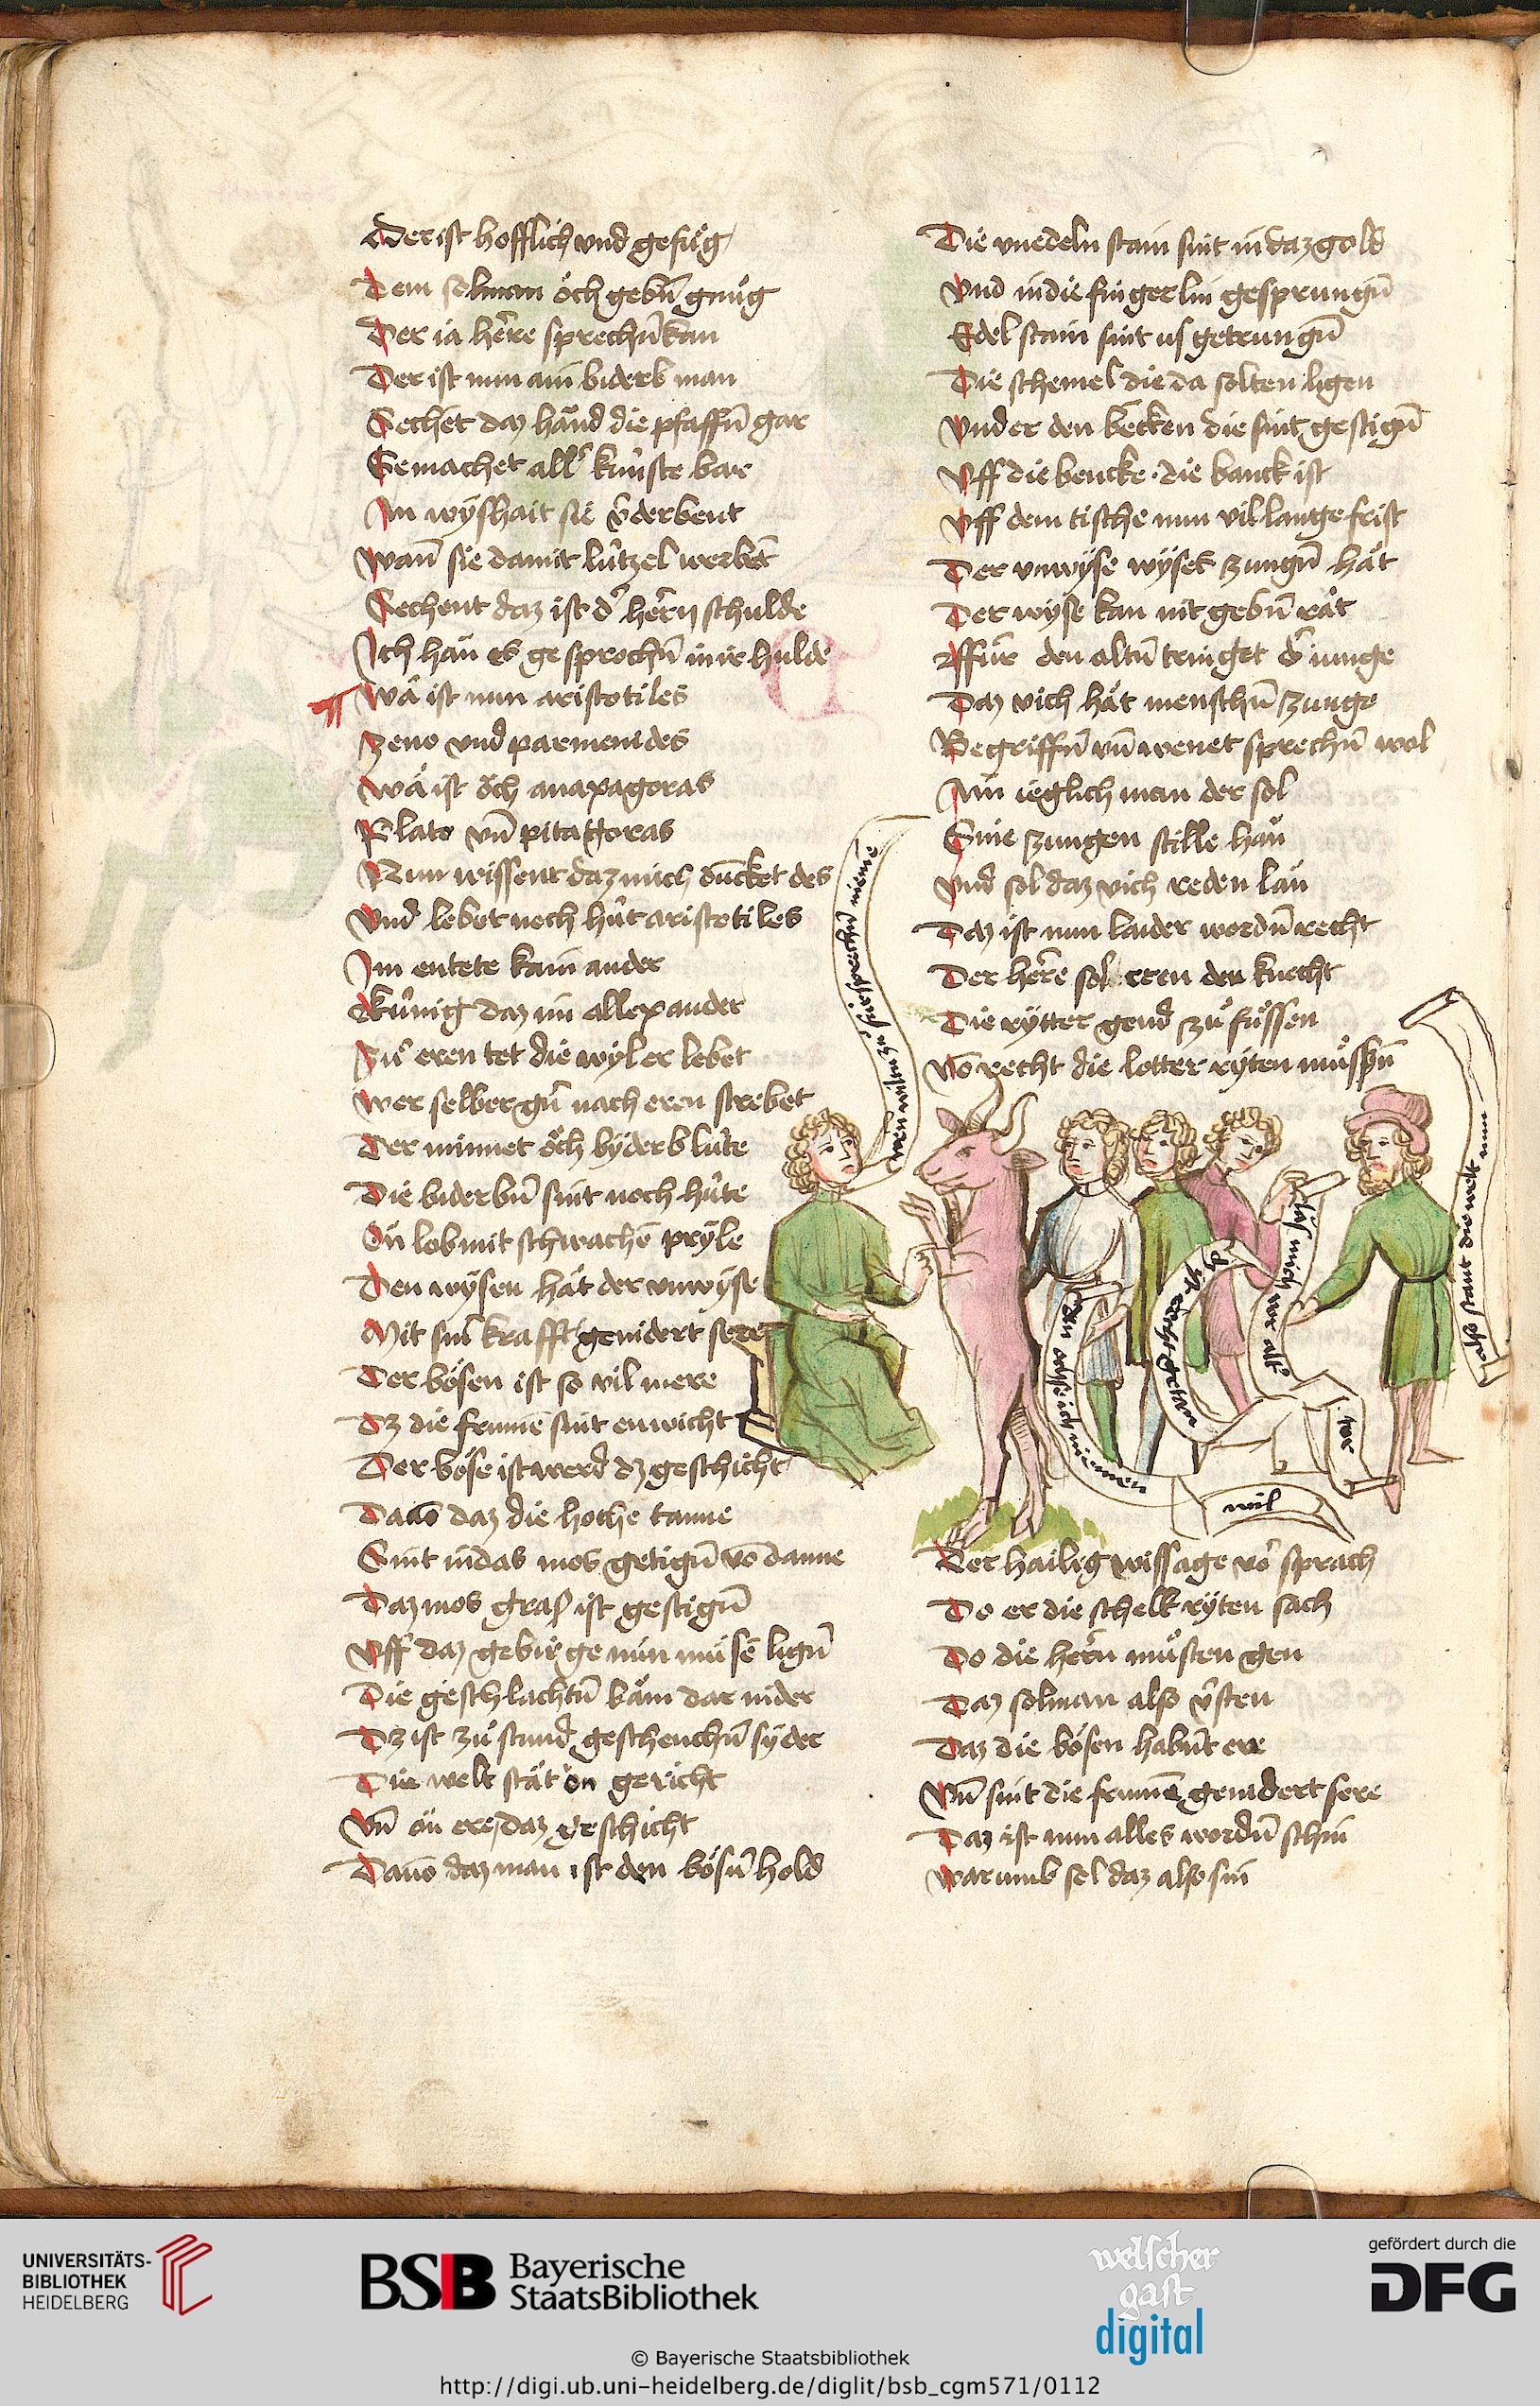 Der ist hofflich und gefůg
Dem sol man och gebn̄ gnůg
Der ia herre sprechn̄ kan
Der ist nun ain biderb man
Sechet daz händ die pfaffn̄ gar
Gemachet all' kunste bar
An wÿshait sie v̄derbent
Wan̄ sie damit lützel werbēt
Sechent daz ist d' herrn schulde
Ich hän es gesprochn̄ in ir hulde
Wä ist nun aristotiles
Zeno und parmenides
Wä ist öch anaxagoras
Plato vn̄ pitagoras
Nun wissent daz mich duncket des
Und lebet noch hüt aristotiles
Im entete kain ander
Künig daz im allexander
Zů eren tet die wÿl er lebet
Wer selber gn̄ nach eren strebet
Der minnet öch bÿderb lüte
Die biderbn̄ sint noch hüte
On lob mit schwachē prÿse
Den wÿsen hät der unwÿse
Mit sin̄ krafft genidert sere
Der bösen ist so vil mere
Dz die frumē sint enwicht
Der böse ist werd dz geschicht
Dauō daz die hoche tanne
Sint in das mos getign̄ vō danne
Daz mos gras ist gestign̄
Uff daz gebirge nun můsē lign̄
Die geschlachtn̄ bäm dar nider
Dz ist zů stund geschenchn̄ sÿder
Die welt stät on gericht
Vn̄ on ere daz geschicht
Dauō daz man ist den bösn̄ hold
Die unedeln stain sint in daz gold
Und in die fingerlin gesprungn̄
Edel stain sint us getrungn̄
Die schemel die da solten ligen
Under den becken die sint gestign̄
Uff die bencke die banck ist
Uff dem tische nun vil lange frist
Der unwÿse wÿses zungn̄ hät
Der wÿse kan nit gebn̄ rät
Ffür den altn̄ tringet d' iunge
Daz vich hät menschn̄ zunge
Begriffn̄ vn̄ wenet sprechn̄ wol
Ain ieglich man der sol
Sine zungen stille hän
Und sol daz vich reden län
Daz ist nun laider wordn̄ recht
Der herre sol eren den knecht
Die rÿtter gend zů füssen
Vō recht die lotter rÿten můssn̄
wen wilt zu fürsprechn̄ nieme
gen ochse ich niemen
wil
dz ist ergst getan
las mich vor alt'
tor
also stant die welt nun
Der hailig wissage vor sprach
Do er die schelk rÿten sach
Do die herrn můsten gen
Daz sol man also v̄sten
Daz die bösen habn̄t ere
Vn̄ sint die frumē genidert sere
Daz ist nun alles wordn̄ schin
Warumb sol daz also sin
UNIVERSITÄTS-
BIBLIOTHEK
HEIDELBERG
BSB Bayerische
StaatsBibliothek
welscher
gast
digital
gefördert durch die
DFG
© Bayerische Staatsbibliothek
http://digi.ub.uni-heidelberg.de/diglit/bsb_cgm571/0112